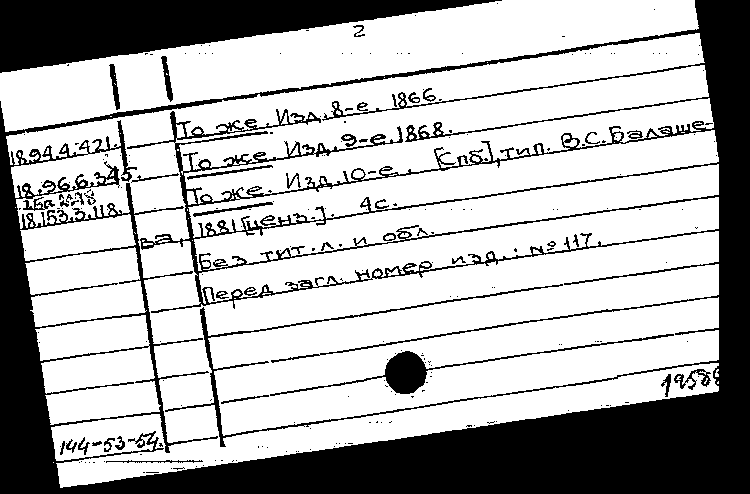 2
18.94.4.421. То же. Изд. 8-е. 1866.
18.96.6.345. То же. Изд. 9-е. 1868.
18.153.3.118. То же. Изд. 10-е. [Спб.], тип. В.С.Балаше-
ва, 1881 [ценз.]. 4с.
Без тит. л. и обл.
Перед загл. номер изд.: №117.
144-53-54.